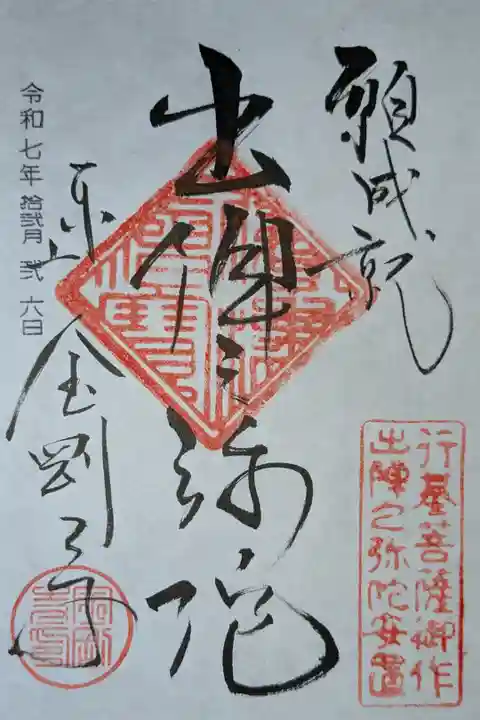 願成就
出陣之弥陀
令和七年 拾弐月 弐六日
東山
金剛寺
行基菩薩御作
出陣之弥陀安置